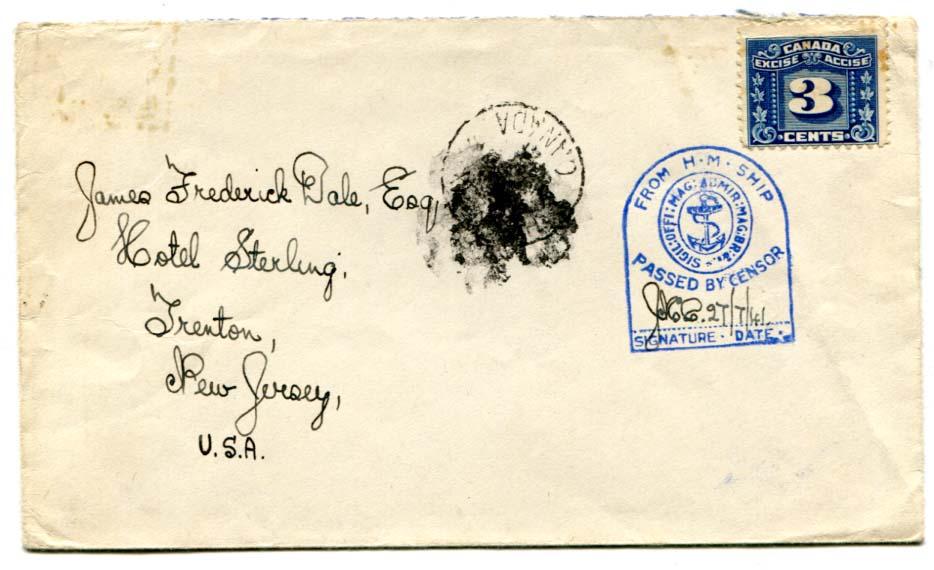 CANADA
EXCISE ACCISE
3
CENTS
CANADA
FROM H·M·SHIP
SIGIL:OFFI:MAG:ADMIR:MAG:BR:&
PASSED BY CENSOR
27/7/41.
SIGNATURE · DATE ·
James Frederick Dale, Esq,
Hotel Sterling,
Trenton,
New Jersey,
U.S.A.